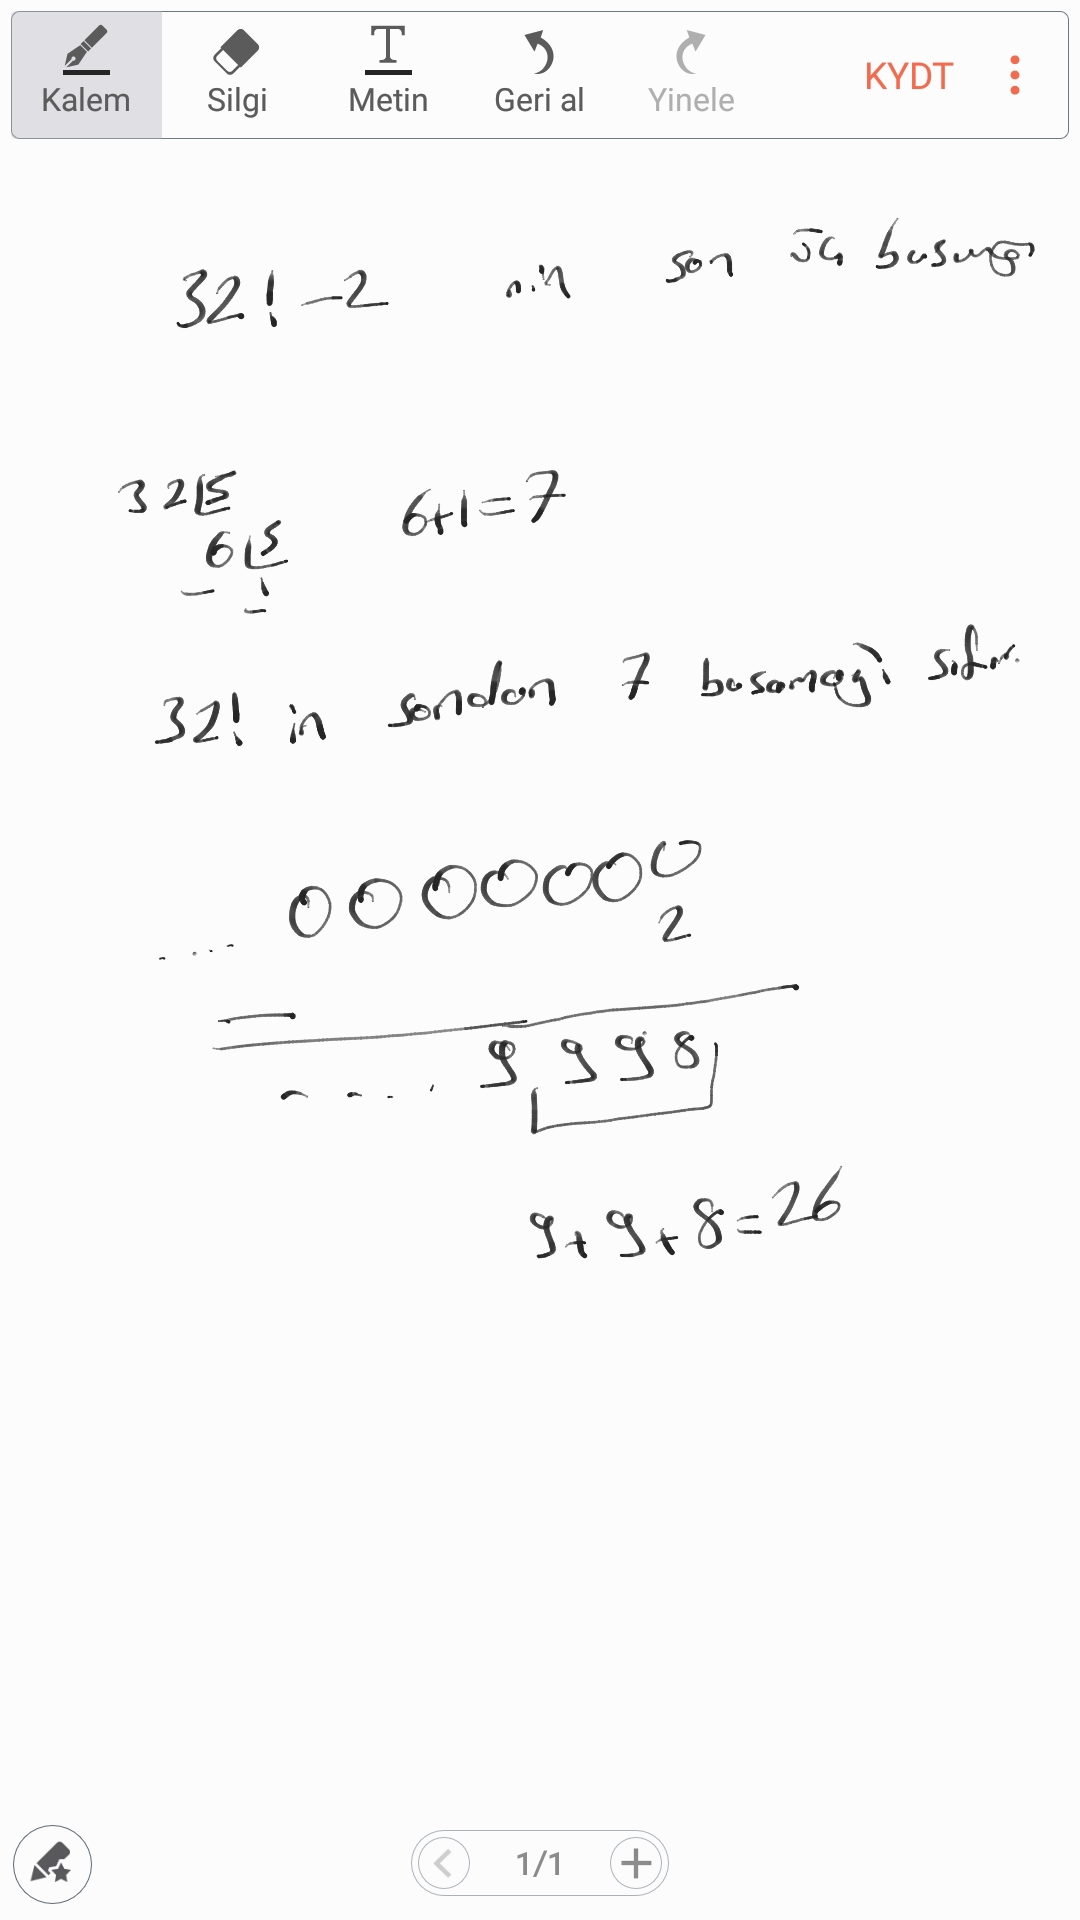 Kalem Silgi Metin Geri al Yinele KYDT
32! - 2 nin son üç basamağı
32 | 5
6 | 5
1
6+1=7
32! in sondan 7 basamağı sıfır.
.... 0 0 0 0 0 0 0
2
—
.... 9 9 9 8
9+9+8=26
1/1